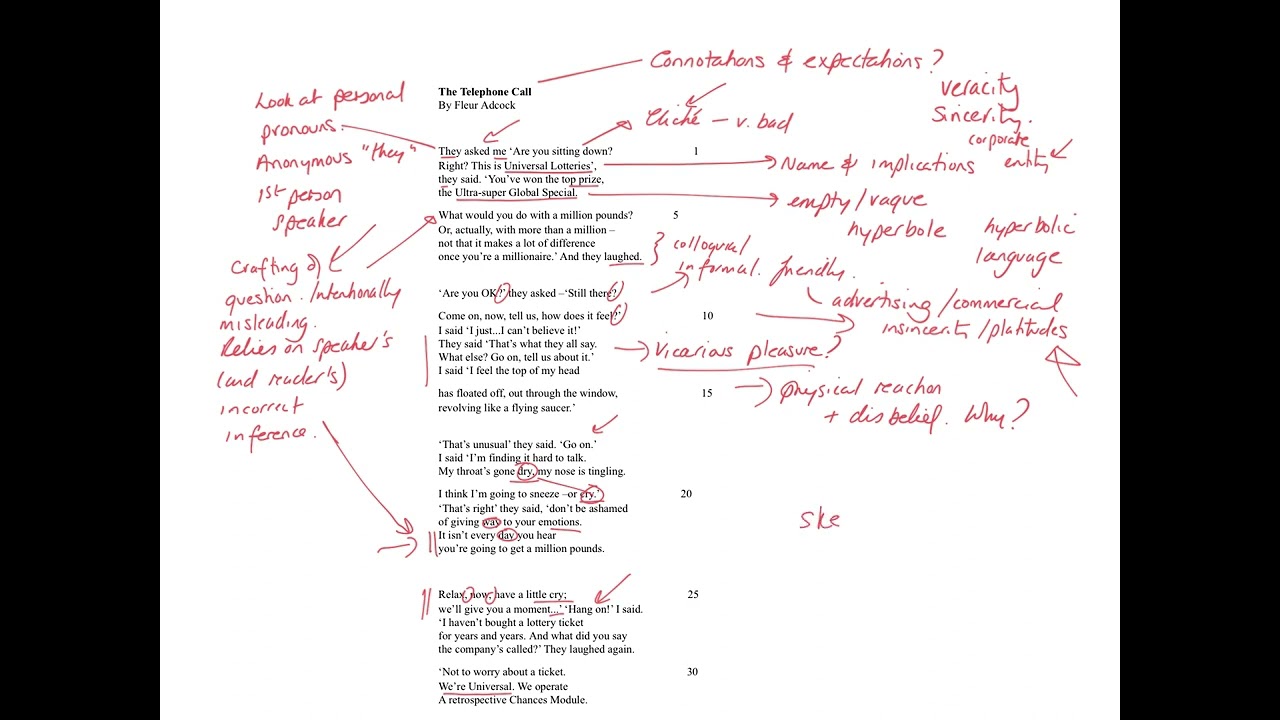 Connotations & expectations?
veracity
Sincerity.
corporate
entity
Look at personal
pronouns.
Anonymous "they"
1st person
speaker
Cliché – v. bad
Name & implications
empty/vague
hyperbole
hyperbolic
language
colloquial/
informal. friendly.
advertising/commercial
insincerity/platitudes
Crafting of
question. /Intentionally
misleading.
Relies on speaker's
(and reader's)
incorrect
inference.
Vicarious pleasure?
physical reaction
+ disbelief. Why?
ske
The Telephone Call
By Fleur Adcock
They asked me ‘Are you sitting down? 1
Right? This is Universal Lotteries’,
they said. ‘You’ve won the top prize,
the Ultra-super Global Special.
What would you do with a million pounds? 5
Or, actually, with more than a million –
not that it makes a lot of difference
once you’re a millionaire.’ And they laughed.
‘Are you OK?’ they asked –‘Still there?
Come on, now, tell us, how does it feel?’ 10
I said ‘I just...I can’t believe it!’
They said ‘That’s what they all say.
What else? Go on, tell us about it.’
I said ‘I feel the top of my head
has floated off, out through the window, 15
revolving like a flying saucer.’
‘That’s unusual’ they said. ‘Go on.’
I said ‘I’m finding it hard to talk.
My throat’s gone dry, my nose is tingling.
I think I’m going to sneeze –or cry.’ 20
‘That’s right’ they said, ‘don’t be ashamed
of giving way to your emotions.
It isn’t every day you hear
you’re going to get a million pounds.
Relax, now, have a little cry; 25
we’ll give you a moment...’ ‘Hang on!’ I said.
‘I haven’t bought a lottery ticket
for years and years. And what did you say
the company’s called?’ They laughed again.
‘Not to worry about a ticket. 30
We’re Universal. We operate
A retrospective Chances Module.